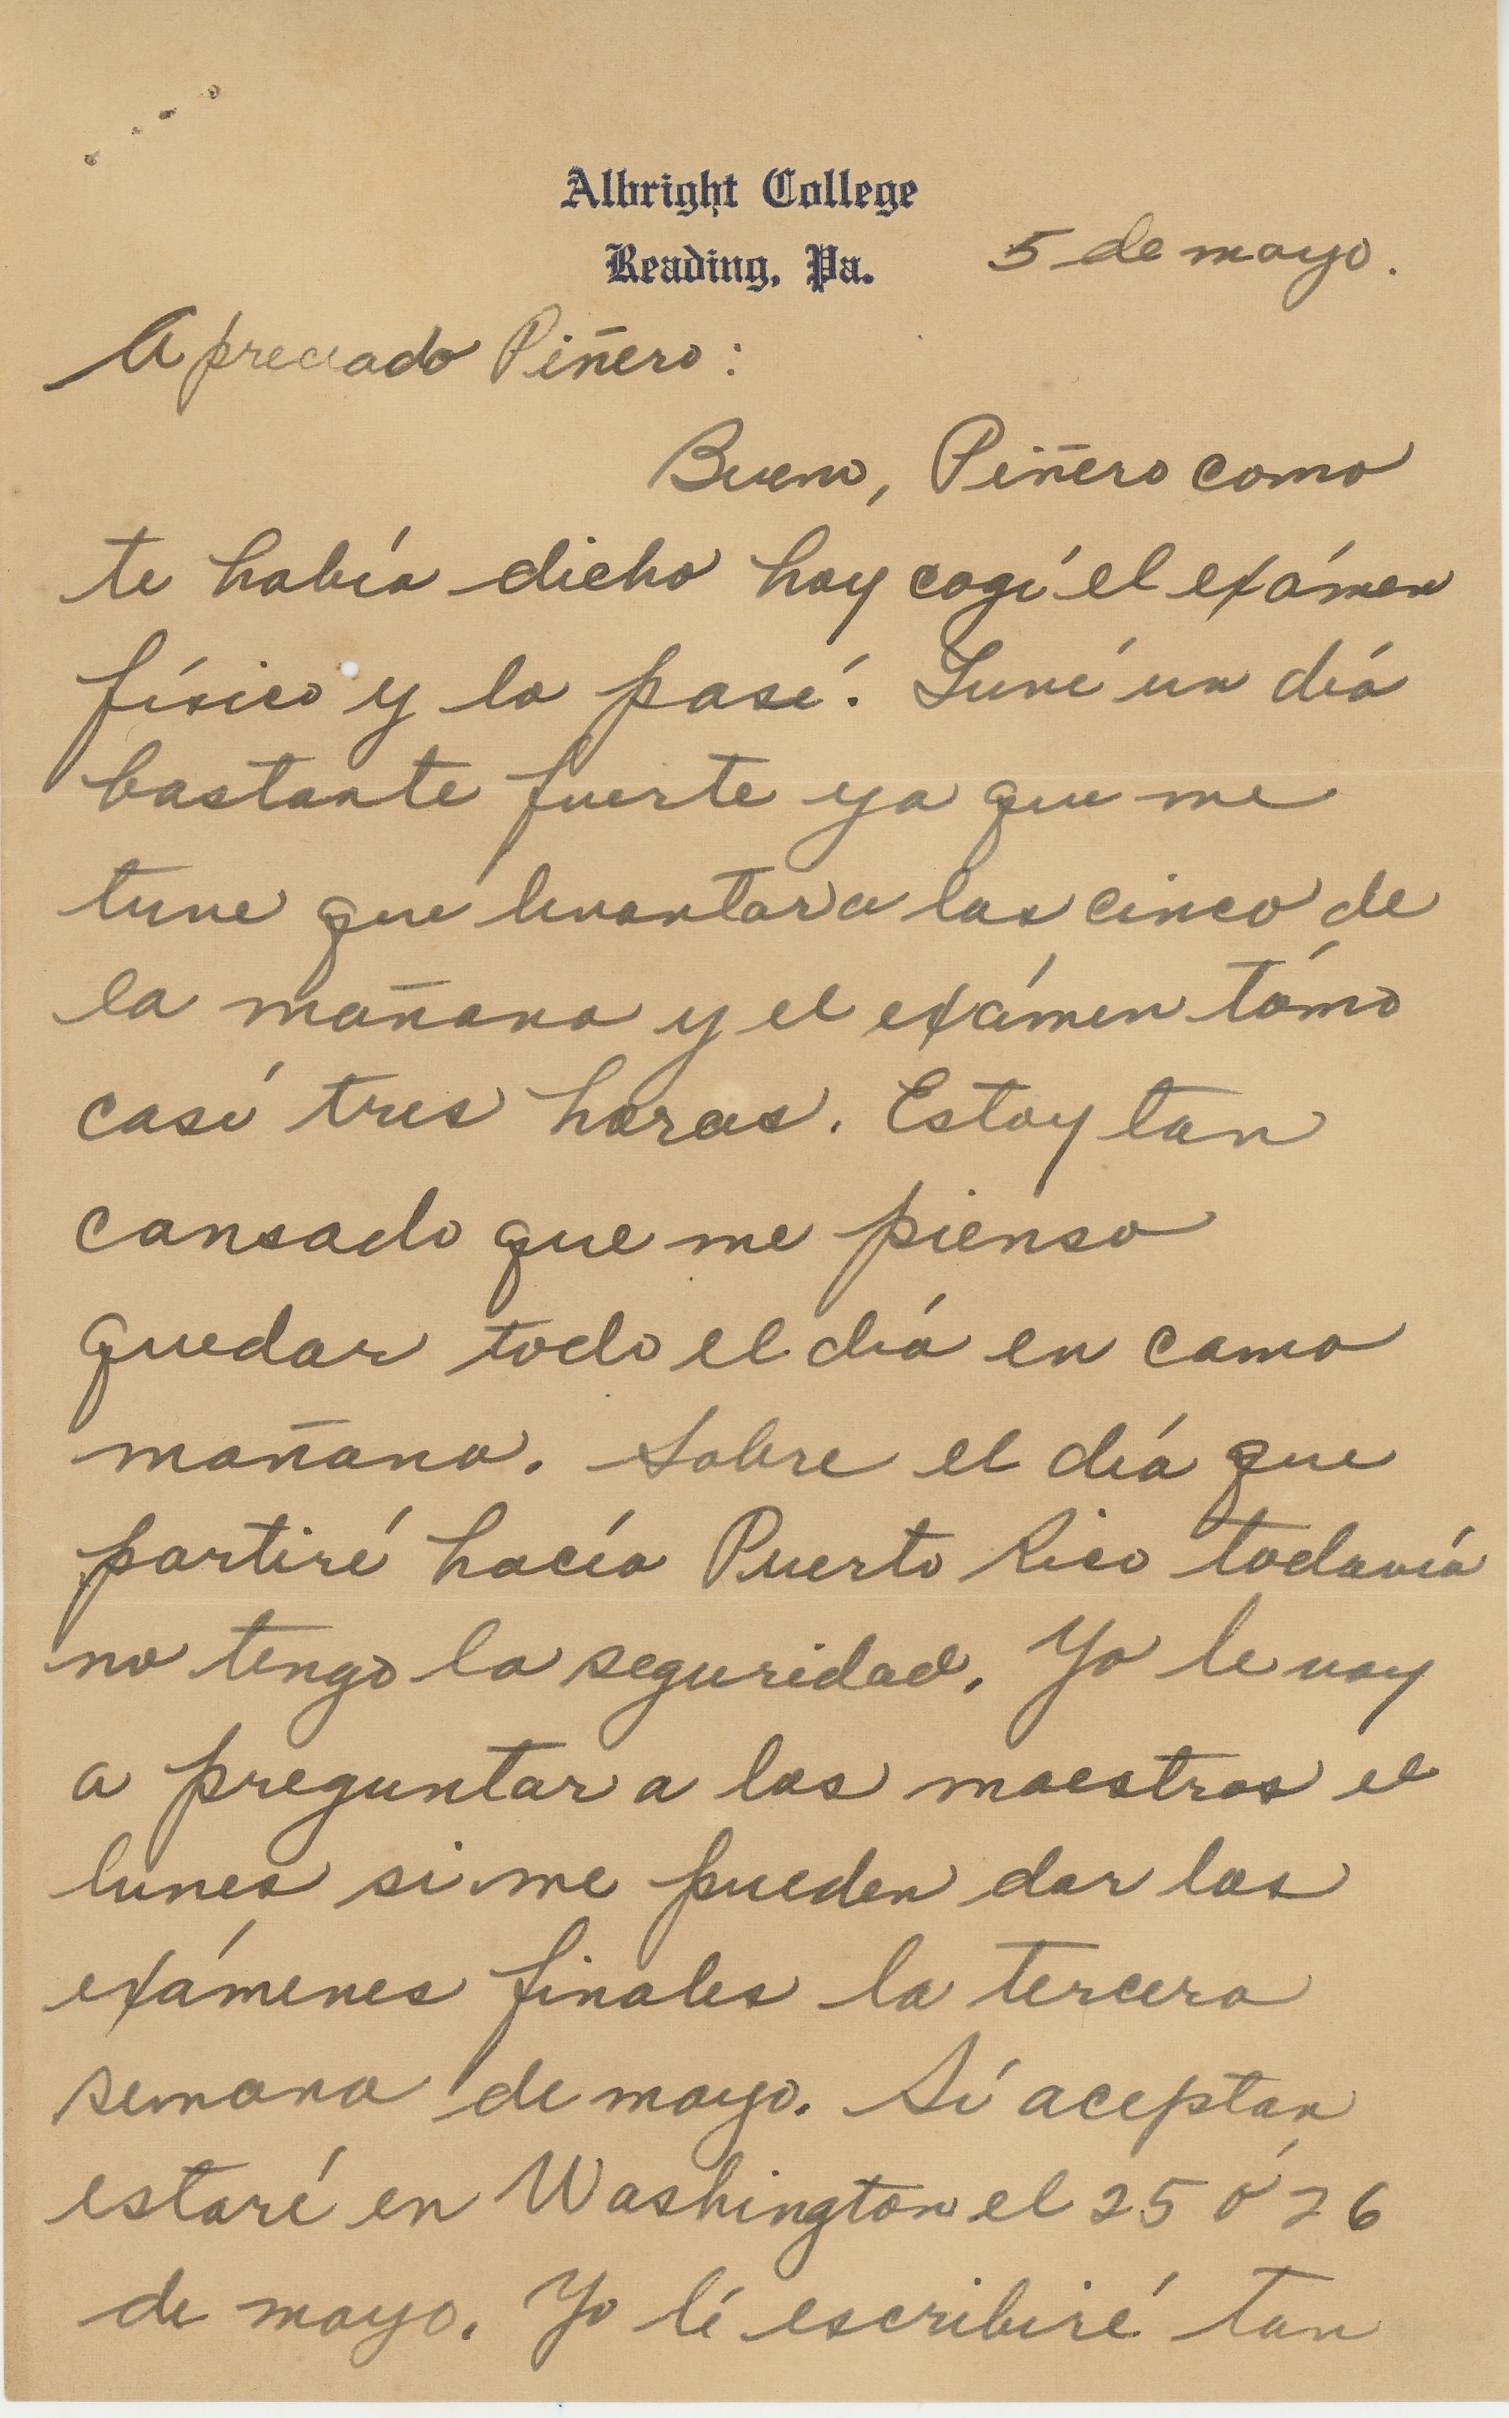 Albright College
Reading, Pa.
5 de mayo.
Apreciado Piñero:
Bueno, Piñero como
te había dicho hoy cogí el exámen
físico y lo pasé. Tuvé un día
bastante fuerte ya que me
tuve que levantar a las cinco de
la mañana y el exámen tómo
casí tres horas. Estoy tan
cansado que me pienso
quedar todo el día en cama
mañana. Sobre el día que
partiré hacía Puerto Rico todavía
no tengo la seguridad. Yo le voy
a preguntar a los maestros el
lunes si me pueden dar los
exámenes finales la tercera
semana de mayo. Sí aceptan
estaré en Washington el 25 ó 26
de mayo. Yo lé escribiré tan